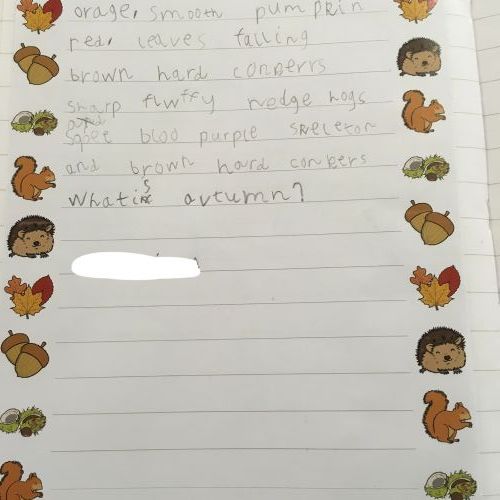 orage, smooth pumpkin
red, leaves falling
brown hard conberrs
sharp flwffy hedge hogs
bloo purple skeleton
and brown hard conbers
What is autumn?